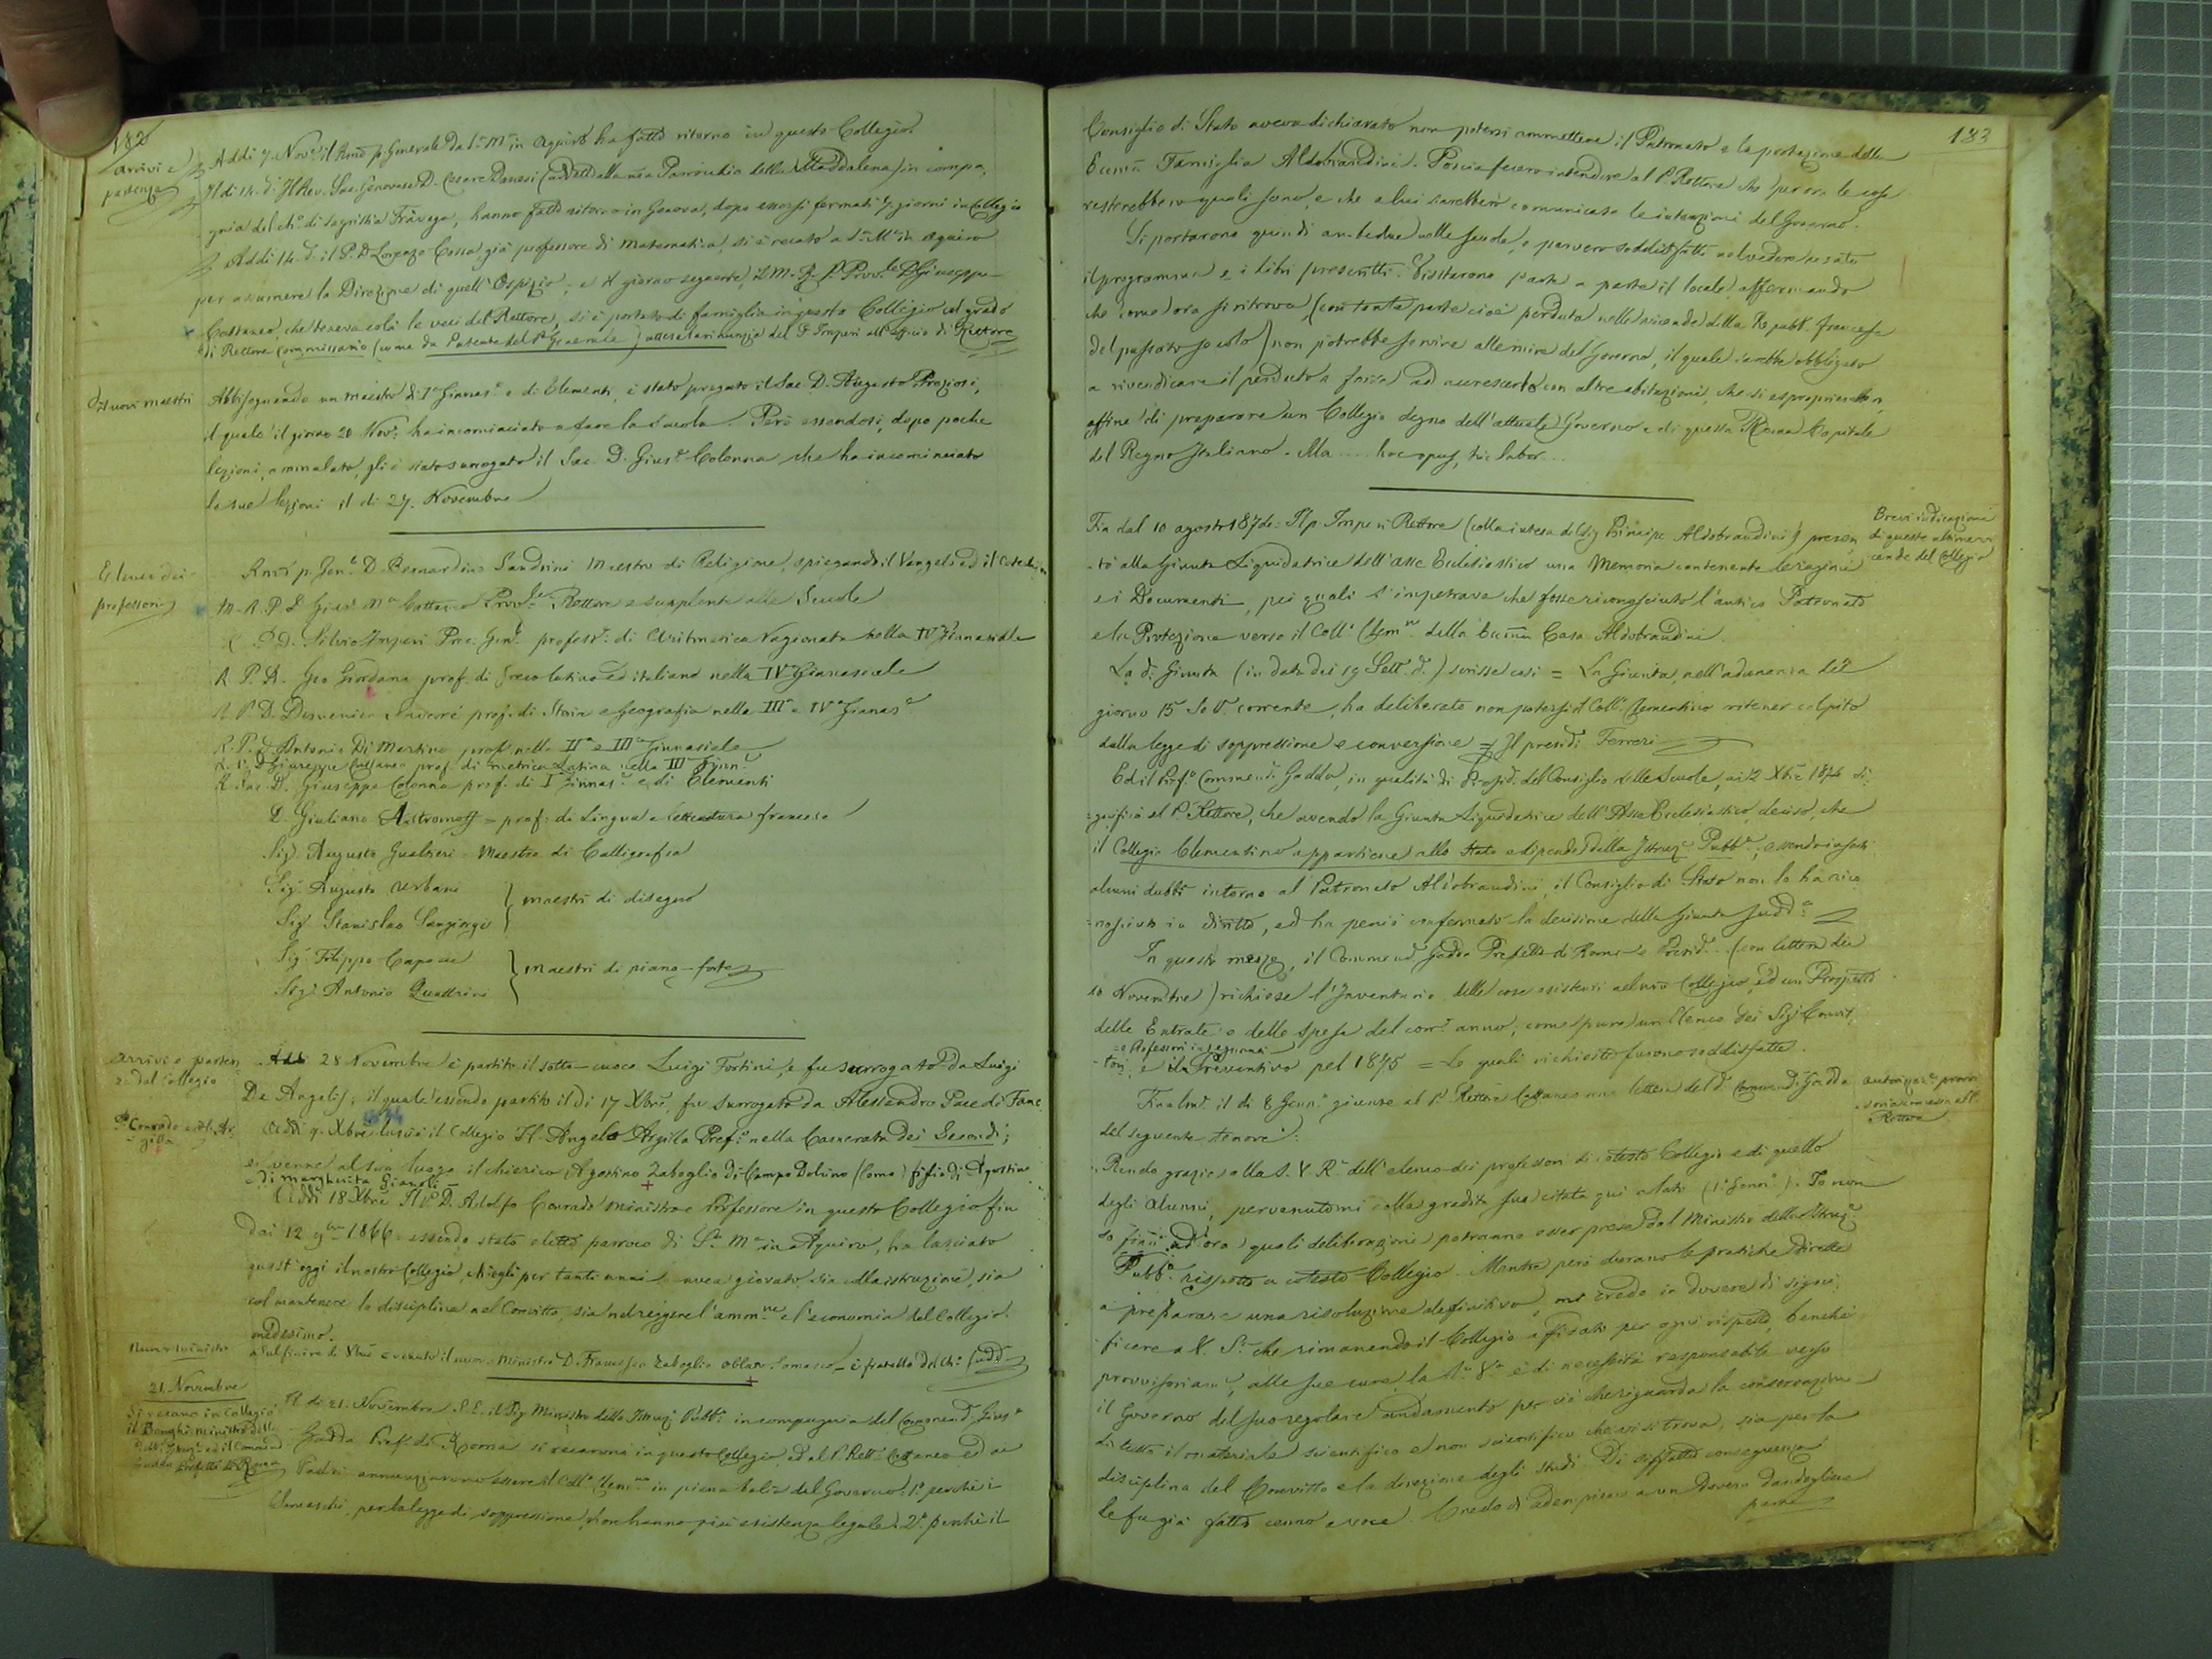 182
Arrivi e
partenze
Addì 7. Nov.e il Rmo p. Generale da S.a M.a in Aquiro ha fatto ritorno in questo Collegio.
Il dì 14. d.o Il Rev. Sac. Genovese D. Cesare Danesi (addetto alla nra Parrocchia della Maddalena) in compa-
gnia del ch.o di sagristia Fravega, hanno fatto ritorno in Genova, dopo essersi fermati 7. giorni in Collegio
Addì 14. d.o il P. D. Lorenzo Cossa, già professore di matematica, si è recato a S.a M.a in Aquiro
per assumere la Direzione di quell'Ospizio; e il giorno seguente, il M. R. P. Prov.le D. Giuseppe
Cattaneo, che teneva colà le veci del Rettore, si è portato di famiglia in questo Collegio col grado
di Rettore Commissario (come da Patente del P. Generale) attesa la rinunzia del P. Imperi all'officio di Rettore
Di nuovi maestri
Abbisognando un maestro di I.a Ginnas.e e di Elementi, è stato pregato il Sac. D. Augusto Graziosi,
il quale il giorno 20 Nov.e ha incominciato a fare la scuola. Però essendosi, dopo poche
lezioni, ammalato, gli è stato surrogato il Sac. D. Gius.e Colonna che ha incominciato
le sue lezioni il dì 27. Novembre
Elenco dei
professori
Rmo p. Gen.e D. Bernardino Sandrini Maestro di Religione, spiegando il Vangelo ed il Catechismo
M. R. P. D. Gius. M.a Cattaneo Prov.le Rettore e supplente alle Scuole
R. P. D. Silvio Imperi Proc. Gen.e profess.e di Aritmetica ragionata nella IV Ginnasiale
R. P. D. Gio Giordano prof. di greco latino ed italiano nella IV Ginnasiale
R. P. D. Domenico prof. di Storia e geografia nella III e IV.a Ginnas.e
R. P. D. Antonio Di Martino prof. nella II.a e III.a Ginnasiale
R. P. D. Giuseppe Cattaneo prof. di metrica latina nella III Ginn.e
R. Sac. D. Giuseppe Colonna prof. di I Ginnas.e e di Elementi
D. Giuliano Astromoff = prof. di Lingua e letteratura francese
Sig. Augusto Gualtieri - Maestro di Calligrafia
Sig. Augusto Urbani
Sig. Stanislao Sangiorgi
maestri di disegno
Sig. Filippo Capocci
Sig. Antonio Quattrini
maestri di piano-forte
Arrivi e parten-
ze dal Collegio
Addì 28 Novembre è partito il sotto-cuoco Luigi Fortini, e fu surrogato da Luigi
De Angelis; il quale essendo partito il dì 17 Xbre, fu surrogato da Alessandro Pace di Fano
P. Conrado e Ar-
gilla
Addì 9. Xbre lasciò il Collegio Il Angelo Argilla Pref.o nella Camerata dei Secondi;
e venne al suo luogo il chierico Agostino Zaboglio di Campo Dolcino (Como) figlio di Agostino
di Margherita Gianoli -
Addì 18 Xbre Il P. D. Adolfo Conrado ministro e Professore in questo Collegio fin
dai 12 9bre 1866 essendo stato eletto parroco di S.a M.a in Aquiro, ha lasciato
quest'oggi il nostro Collegio, ch'egli per tanti anni avea giovato sia colla istruzione, sia
col mantenere la disciplina nel Convitto, sia nel reggere l'amm.ne e l'economia del Collegio
medesimo.
Nuovo ministro
Sul finire di Xbre è venuto il nuovo Ministro D. Francesco Zaboglio oblato Somasco - è fratello del Ch.o sudd.o
21. Novembre
Si recano in Collegio
il Bonghi ministro della
Pubb. Istruz. ed il Commend
Gadda prefetto di Roma
Il dì 21. Novembre S. E. il Sig. Ministro della Istruz. Pubb.a in compagnia del Commend. Gius.e
Gadda Pref. di Roma si recarono in questo Collegio, ed al P. Rett. Cattaneo ed ai
Padri annunziarono essere il Coll.o Clem.no in piena balìa del Governo: 1.o perchè i
Somaschi, per la legge di soppressione, non hanno più esistenza legale: 2.o perchè il
183
Consiglio di Stato aveva dichiarato non potersi ammettere il Patronato e la protezione della
Eccma Famiglia Aldobrandini. Poscia fecero intendere al P. Rettore che per ora le cose
resterebbero quali sono, e che a lui sarebbero comunicate le intenzioni del Governo.
Si portarono quindi ambedue nelle scuole, e parvero soddisfatti nel vedere usati
il programma e i libri prescritti. Visitarono parte a parte il locale, affermando
che come ora si ritrova (con tanta parte cioè perduta nelle vicende della Repubb. francese
del passato secolo) non potrebbe servire alle mire del Governo, il quale sarebbe obbligato
a rivendicare il perduto o forse ad accrescerlo con altre abitazioni, che si esproprierebbero,
affine di preparare un Collegio degno dell'attuale Governo e di questa Roma Capitale
del Regno Italiano. Ma .... hoc opus, hic labor...
Brevi indicazioni
di queste ultime vi-
cende del Collegio
Fin dal 10 agosto 1874: Il p. Imperi Rettore (colla intesa del Sig. Principe Aldobrandini) presen-
tò alla Giunta Liquidatrice dell'Asse Ecclesiastico una Memoria contenente le ragioni
e i Documenti, pei quali s'impetrava che fosse riconosciuto l'antico Patronato
e la Protezione verso il Coll.o Clem.no della Eccma Casa Aldobrandini
La d.a Giunta (in data dei 19 Sett. d.o) scrisse così = La Giunta, nell'adunanza del
giorno 15 Sett. corrente, ha deliberato non potersi il Coll.o Clementino ritener colpito
dalla legge di soppressione e conversione = Il presid.e Ferreri
Ed il Pref.o Commend. Gadda, in qualità di Presid. del Consiglio delle Scuole, ai 12 Xbre 1874 si-
gnificò al P. Rettore, che avendo la Giunta Liquidatrice dell'Asse Ecclesiastico deciso, che
il Collegio Clementino appartiene allo Stato e dipende dalla Istruz. Pubb.a, essendo insorti
alcuni dubbi intorno al Patronato Aldobrandini, il Consiglio di Stato non lo ha rico-
nosciuto in diritto, ed ha perciò confermato la decisione della Giunta sudd.a
In questo mezzo, il Commend. Gadda Prefetto di Roma e Presid. (con lettera dei
10 Novembre) richiese l'Inventario delle cose esistenti nel nro Collegio, ed un Prospetto
delle Entrate e delle spese del corr. anno, come pure un Elenco dei Sig.i Convit-
e Professori insegnanti
-tori, e il Preventivo pel 1875 = Le quali richieste furono soddisfatte.
Autorizz.e provvi-
soria concessa al P.
Rettore
Finalm. il dì 8 Genn.o giunse al P. Rettore Cattaneo una lettera del d.o Commend. Gadda
del seguente tenore:
Rendo grazie alla S. V. R. dell'elenco dei professori di cotesto Collegio e di quello
degli alunni, pervenutomi colla gradita sua citata qui a lato (1.o Genn.o). Io non
so finì ad ora quali deliberazioni potranno esser prese dal Ministro della Istruz.
Pubb.a rispetto a cotesto Collegio. Mentre però durano le pratiche dirette
a preparare una risoluzione definitiva, mi credo in dovere di signi-
ficare a V. S. che rimanendo il Collegio affidato per ogni rispetto, benchè
provvisoriam.e, alle sue cure, la S. V. è di necessità responsabile verso
il Governo del suo regolare andamento per ciò che riguarda la conservazione
di tutto il materiale scientifico e non scientifico che vi si trova, sia per la
disciplina del Convitto e la direzione degli studi. Di siffatte conseguenze
le fu già fatto cenno a voce. Credo di adempiere a un dovere dandogliene
parte